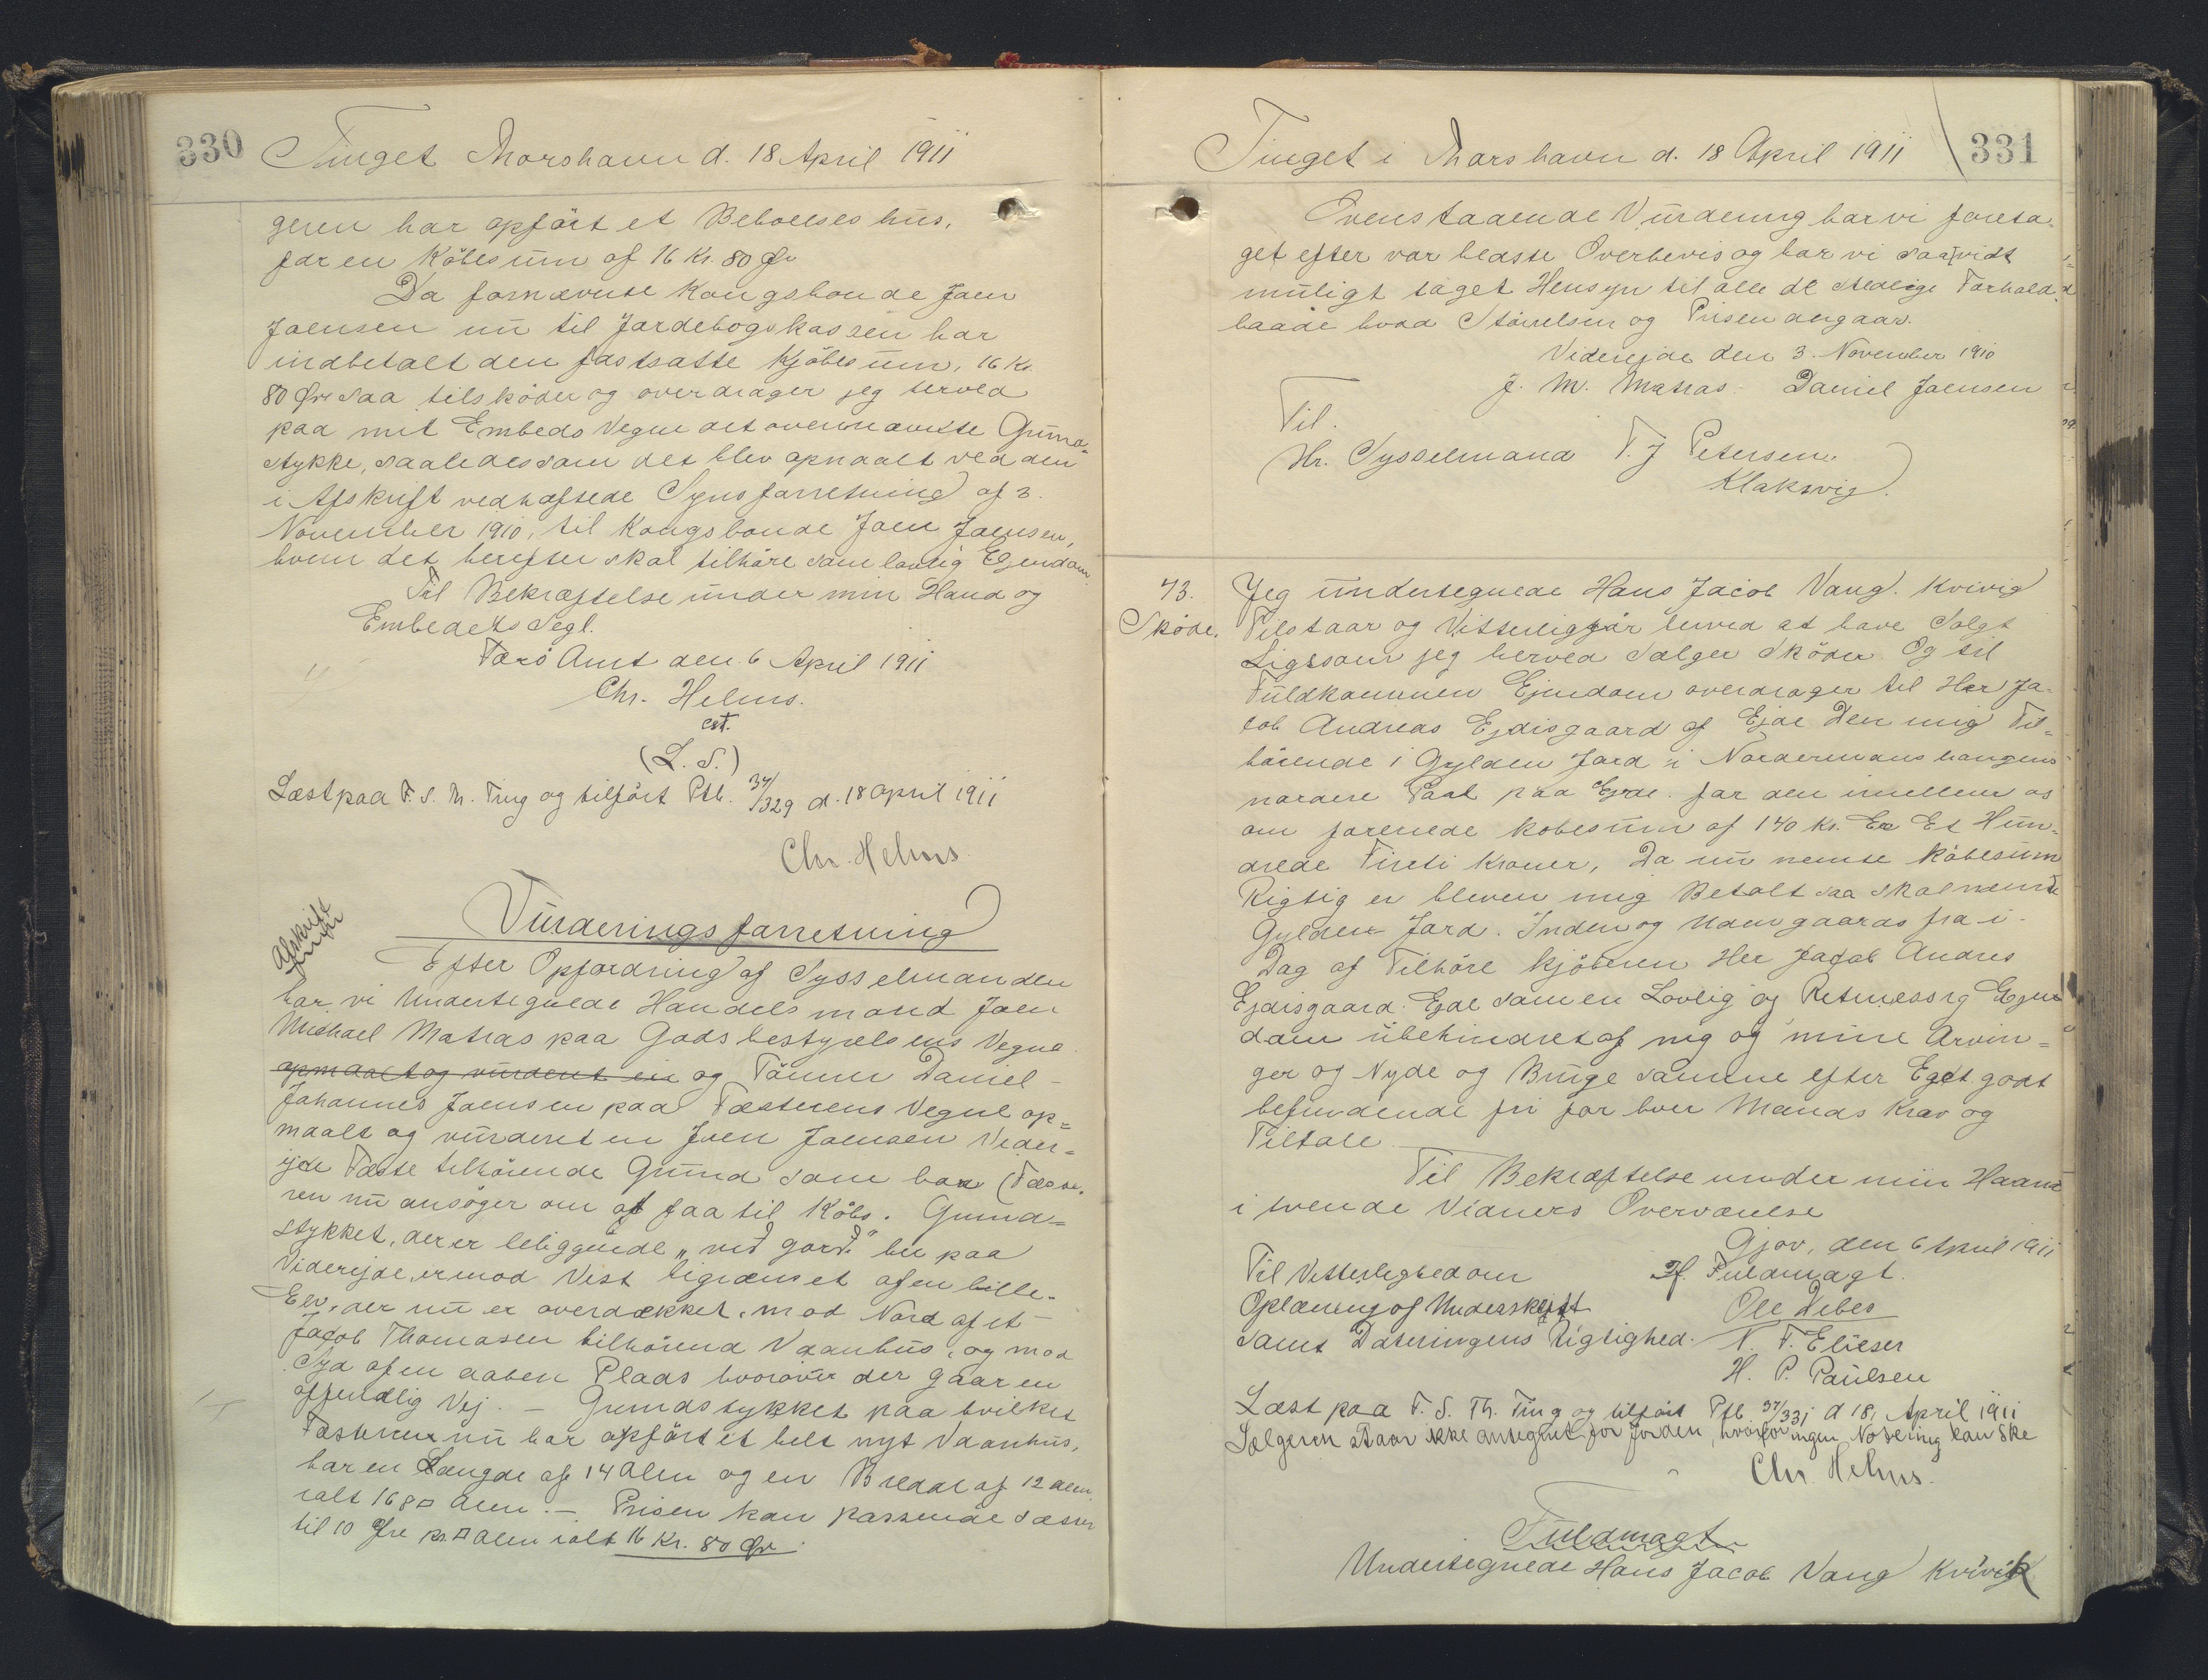 330
Tinget Thorshavn d. 18 April 1911
geren har opført et Beboelseshus,
for en Købesum af 16 Kr. 80 Øre
Da fornævnte Kongsbonde Joen
Joensen nu til Jordebogskassen har
indbetalt den fastsatte Kjøbesum, 16 Kr.
80 Øre saa tilskøder og overdrager jeg herved
paa mit Embeds Vegne det ovennævnte Grund-
stykke, saaledes som det blev opmaalt ved den
i Afskrift vedhæftede Synsforretning af 3.
November 1910, til Kongsbonde Joen Joensen,
hvem det herefter skal tilhøre som lovlig Ejendom
Til Bekræftelse under min Haand og
Embedets Segl.
Færø Amt den 6 April 1911
Chr. Helms.
cst.
(L. S.)
Læst paa F. S. Th. Ting og tilført Ptb. 37/329 d. 18 april 1911
Chr. Helms.
Afskrift
Vurderingsforretning
Efter Opfordring af Sysselmanden
har vi Undertegnede Handelsmand Joen
Michael Matras paa Godsbestyrelsens Vegne
opmaalt og vurderet en og Tømm Daniel
Johannes Joensen paa Fæsterens Vegne op=
maalt og vurderet en Joen Joensen Vider=
ejde Fæste tilhørende Grund som han (Fæste-
ren nu ansøger om at faa til Købs. Grund=
stykket, der er beliggende „við Garð" her paa
Viderejde, er mod Vest begrænset af en lille
Elv, der nu er overdækket, mod Nord af et
Jacob Thomasen tilhørend Vaanhus, og mod
Syd af en aaben Plads hvorover der gaar en
offendlig Vej. – Grundstykket paa hvilket
Fæsteren nu har opført et helt nyt Vaanhus,
har en Længde af 14 Alen og en Bredde af 12 alen
ialt 168 □ Alen. – Prisen kan passende sættes
til 10 Øre pr. □ Alen ialt 16 Kr. 80 Øre.
Tinget i Thorshavn d. 18 April 1911
331
Ovenstaaende Vurdering har vi foreta-
get efter vor bedste Overbevis og har vi saavidt
muligt taget Hensyn til alle de stedlige Forhold
baade hvad Størrelsen og Prisen angaar.
Viderejde den 3. November 1910
J. M. Matras. Daniel Joensen
Til.
Hr. Sysselmand T. J Petersen.
Klaksvig.
73.
Skøde.
Jeg undertegnede Hans Jacob Vang. Kvivig
Tilstaar og Vitterliggør herved at have Solgt
Ligesom jeg herved Sælger Skøder Og til
Fuldkommen Ejendom overdrager til Her Ja-
cob Andreas Ejdisgaard af Ejde Den mig Til=
hørende 1 Gylden Jord i Nordermanshaugens
nordere Part paa Ejde. for den imellem os
om forenede købesum af 140 Kr. Er Et Hun-
drede Fireti Kroner, Da nu nemte Købesum
Rigtig er bleven mig Betalt saa skal nemte
Gylden Jord. Inden og Uden gaards fra i
Dag af Tilhøre kjøberen Her Jacob Andres
Ejdisgaard Ejde som en Lovlig og Retmessig Ejen
dom ubehindret af mig og mine Arvin=
ger og Nyde og Bruge samme efter Eget godt
befindende fri for hver Mands Krav og
Tiltale
Til Bekræftelse under min Haand
i tvende Vidners Overværelse
Gjov, den 6 April 1911
Til Vitterlighed om
If. Fuldmagt.
Oplæsning of Underskrift
Ole Debes
samt Dateringens Rigtighed.
N. F. Elieser
H. P. Paulsen
Læst paa F. S. Th. Ting og tilført Ptb 37/331 d 18, April 1911
Sælgeren staar ikke antegnet for Jorden, hvorfor ingen Notering kan ske
Chr. Helms.
Fuldmagt
Undertegnede Hans Jacob Vang Kvivik